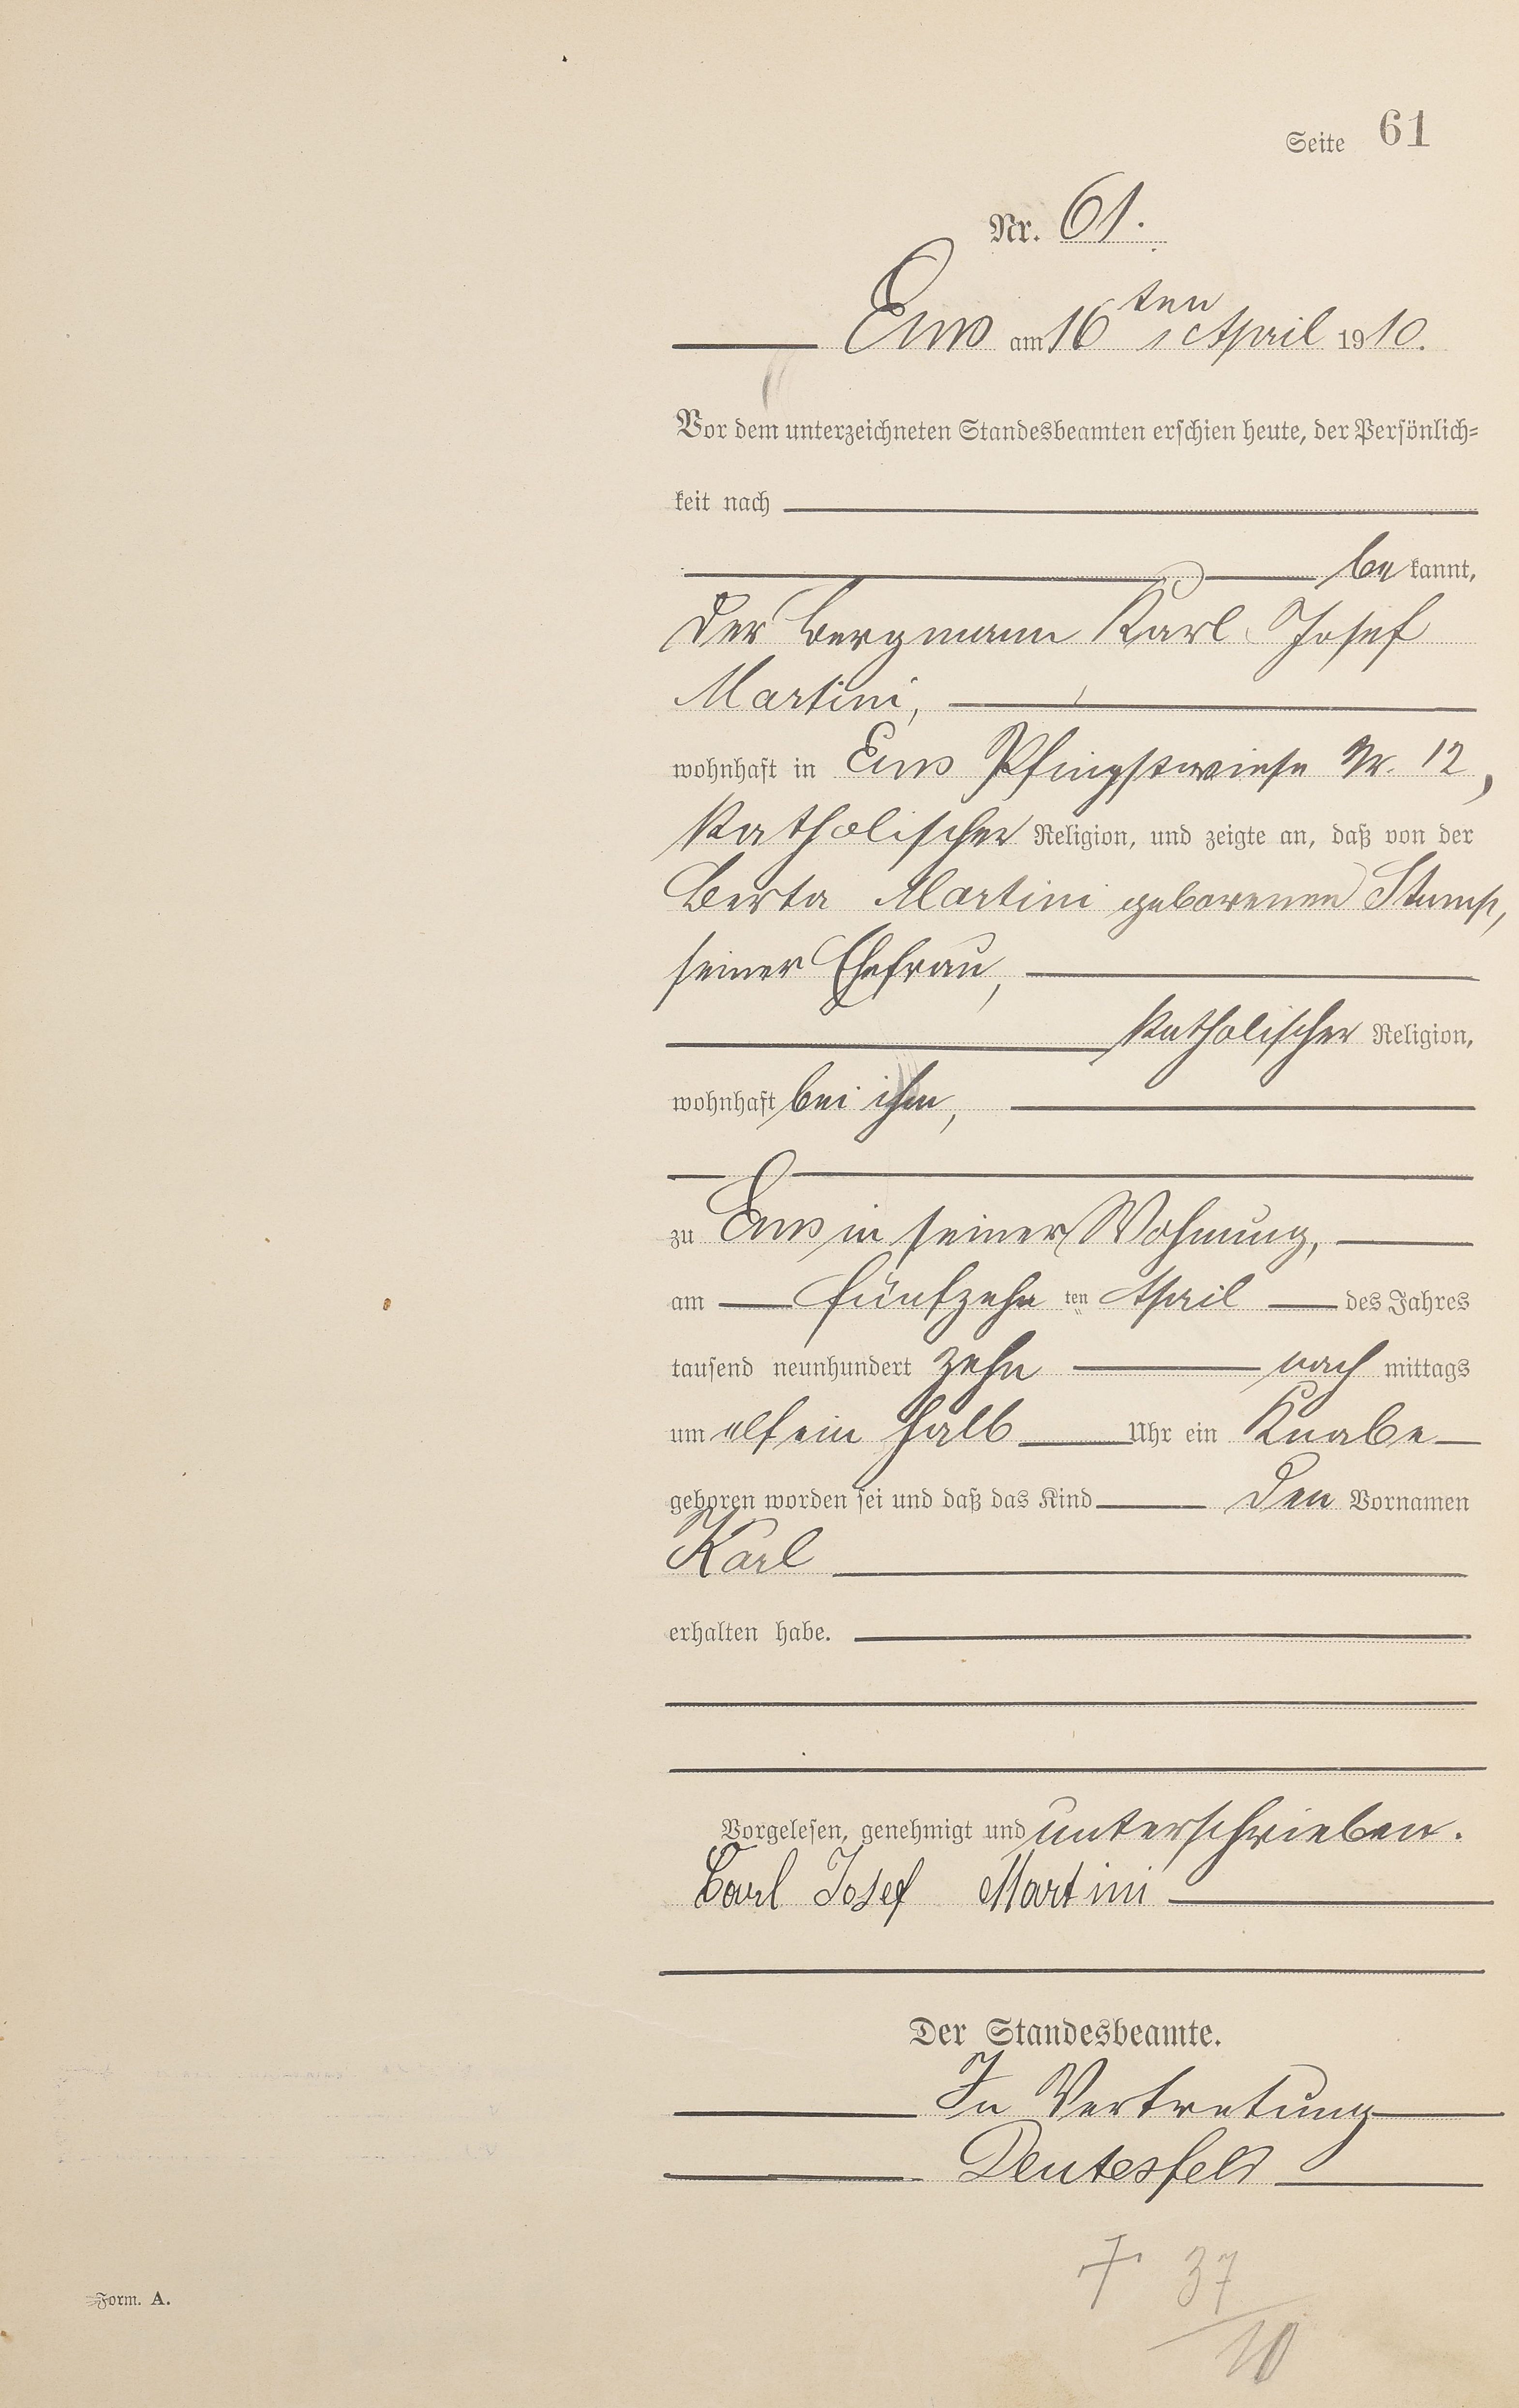 Seite 61
Nr. 61.
Ems am 16ten April 1910.
Vor dem unterzeichneten Standesbeamten erschien heute, der Persönlich-
keit nach
bekannt,
der Bergmann Karl Josef
Martini,
wohnhaft in Ems Pfingstwiese Nr. 12,
katholischer Religion, und zeigte an, daß von der
Berta Martini geborenen Stump,
seiner Ehefrau,
katholischer Religion,
wohnhaft bei ihm,
zu Ems in seiner Wohnung,
am fünfzehnten April des Jahres
tausend neunhundert zehn nachmittags
um elf ein halb Uhr ein Knabe
geboren worden sei und daß das Kind den Vornamen
Karl
erhalten habe.
Vorgelesen, genehmigt und unterschrieben.
Carl Josef Martini
Der Standesbeamte.
In Vertretung
Deutesfeld
† 37
10
Form. A.